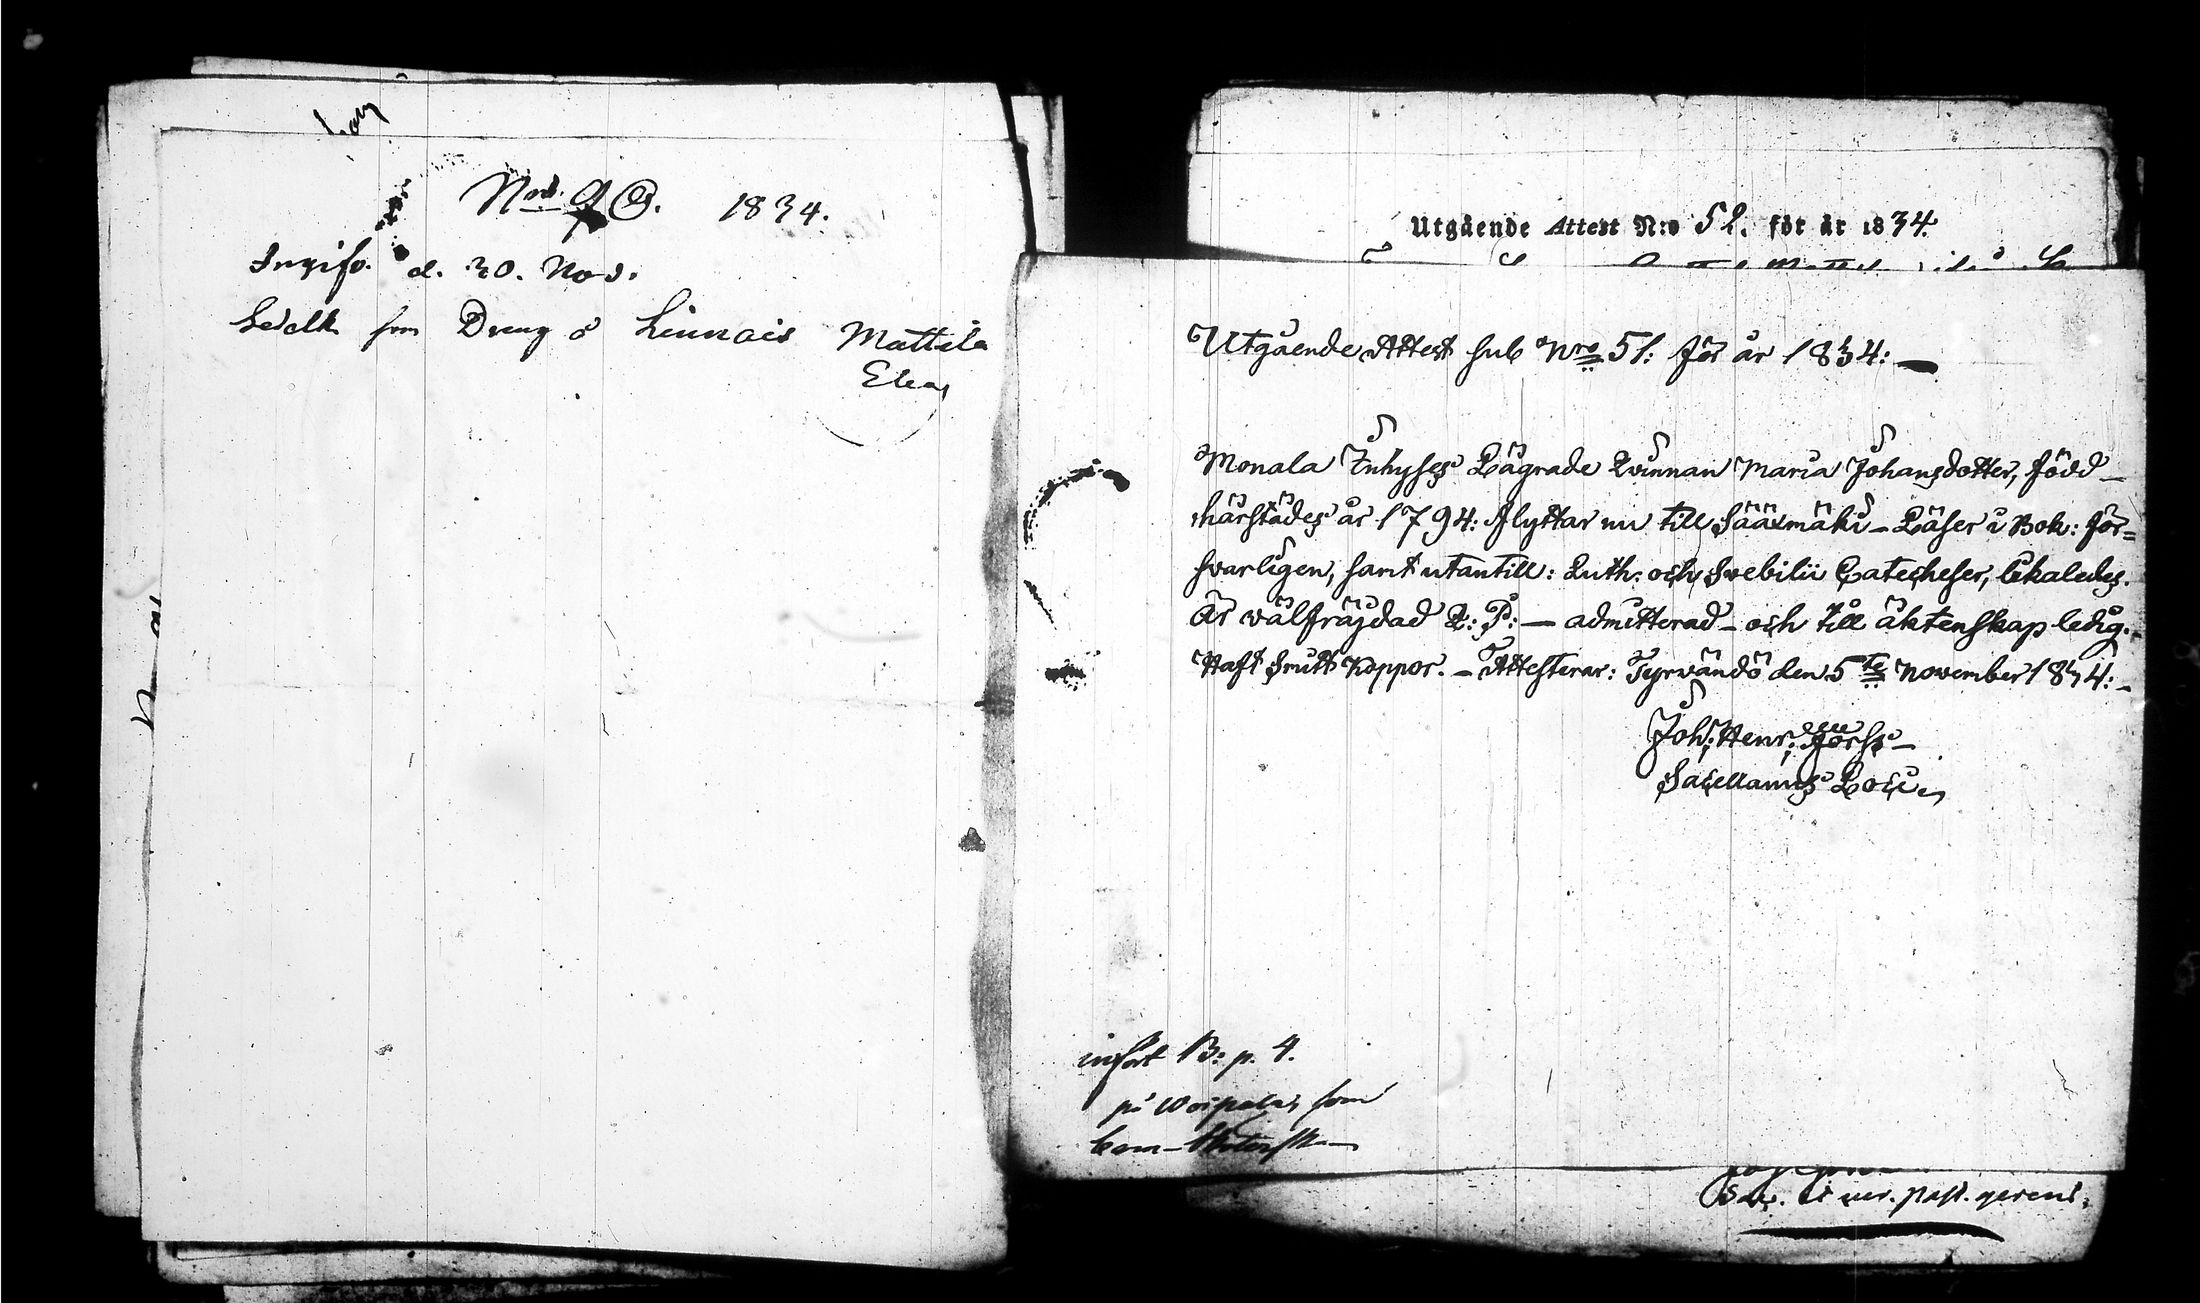 1834.
d. 30. Nov.
som Dreng å Linnais Mattila
Elias
Utgående Attest N:o 52. för år 1834.
Utgående Attest sub Nro 51: för år 1834:
Monala Inhyses Lägrade Qvinnan Maria Johansdotter, född
härstädes år 1794: flyttar nu till Sääxmäki – Läser i Bok: för=
svarligen, samt utantill: Luth: och Svebilii Catecheser, likaledes.
Är välfräjdad L: P: — admitterad – och till äktenskap ledig. –
Haft Smitt Koppor. – Attesterar: Tyrvändö den 5te November 1834: –
Joh: Henr:
Sacellanus Loci
infört B: p. 4.
på som
Sac. et vic. past. gerens.